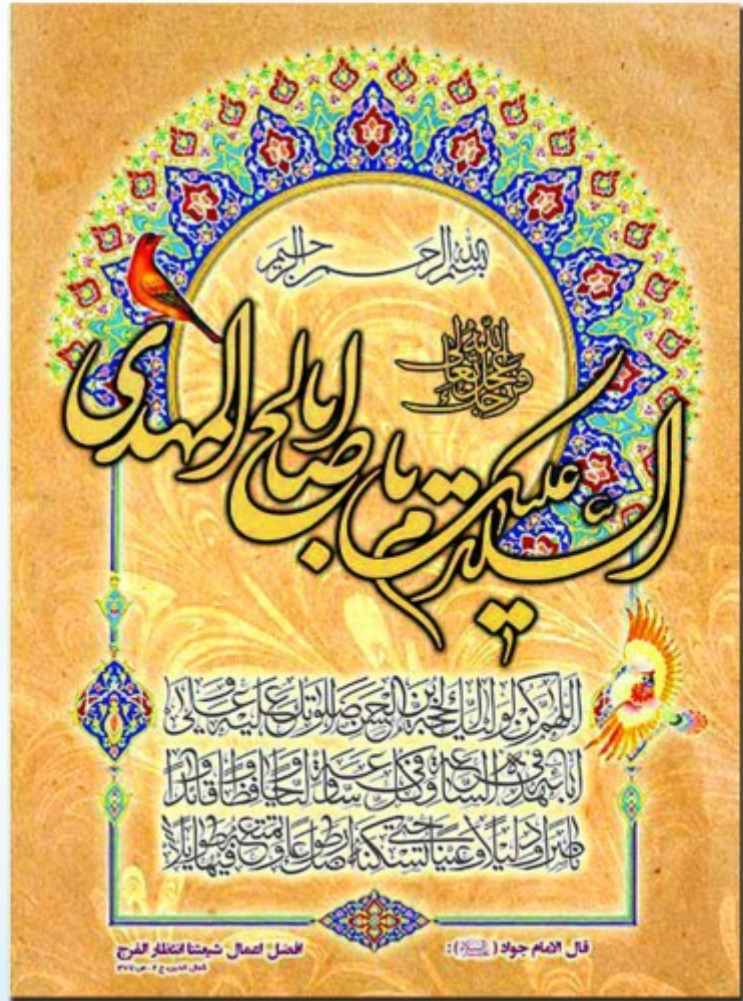 بسم الله الرحمن الرحیم
عجل الله تعالی فرجک
السلام علیک یا اباصالح المهدی
اللهم کن لولیک الحجة ابن الحسن صلواتک علیه و علی
آبائه فی هذه الساعة و فی کل ساعة ولیا و حافظا و قائدا و
ناصرا و دلیلا و عینا حتی تسکنه ارضک طوعا و تمتعه فیها طویلا
قال الامام جواد (علیه السلام):
افضل اعمال شیعتنا انتظار الفرج